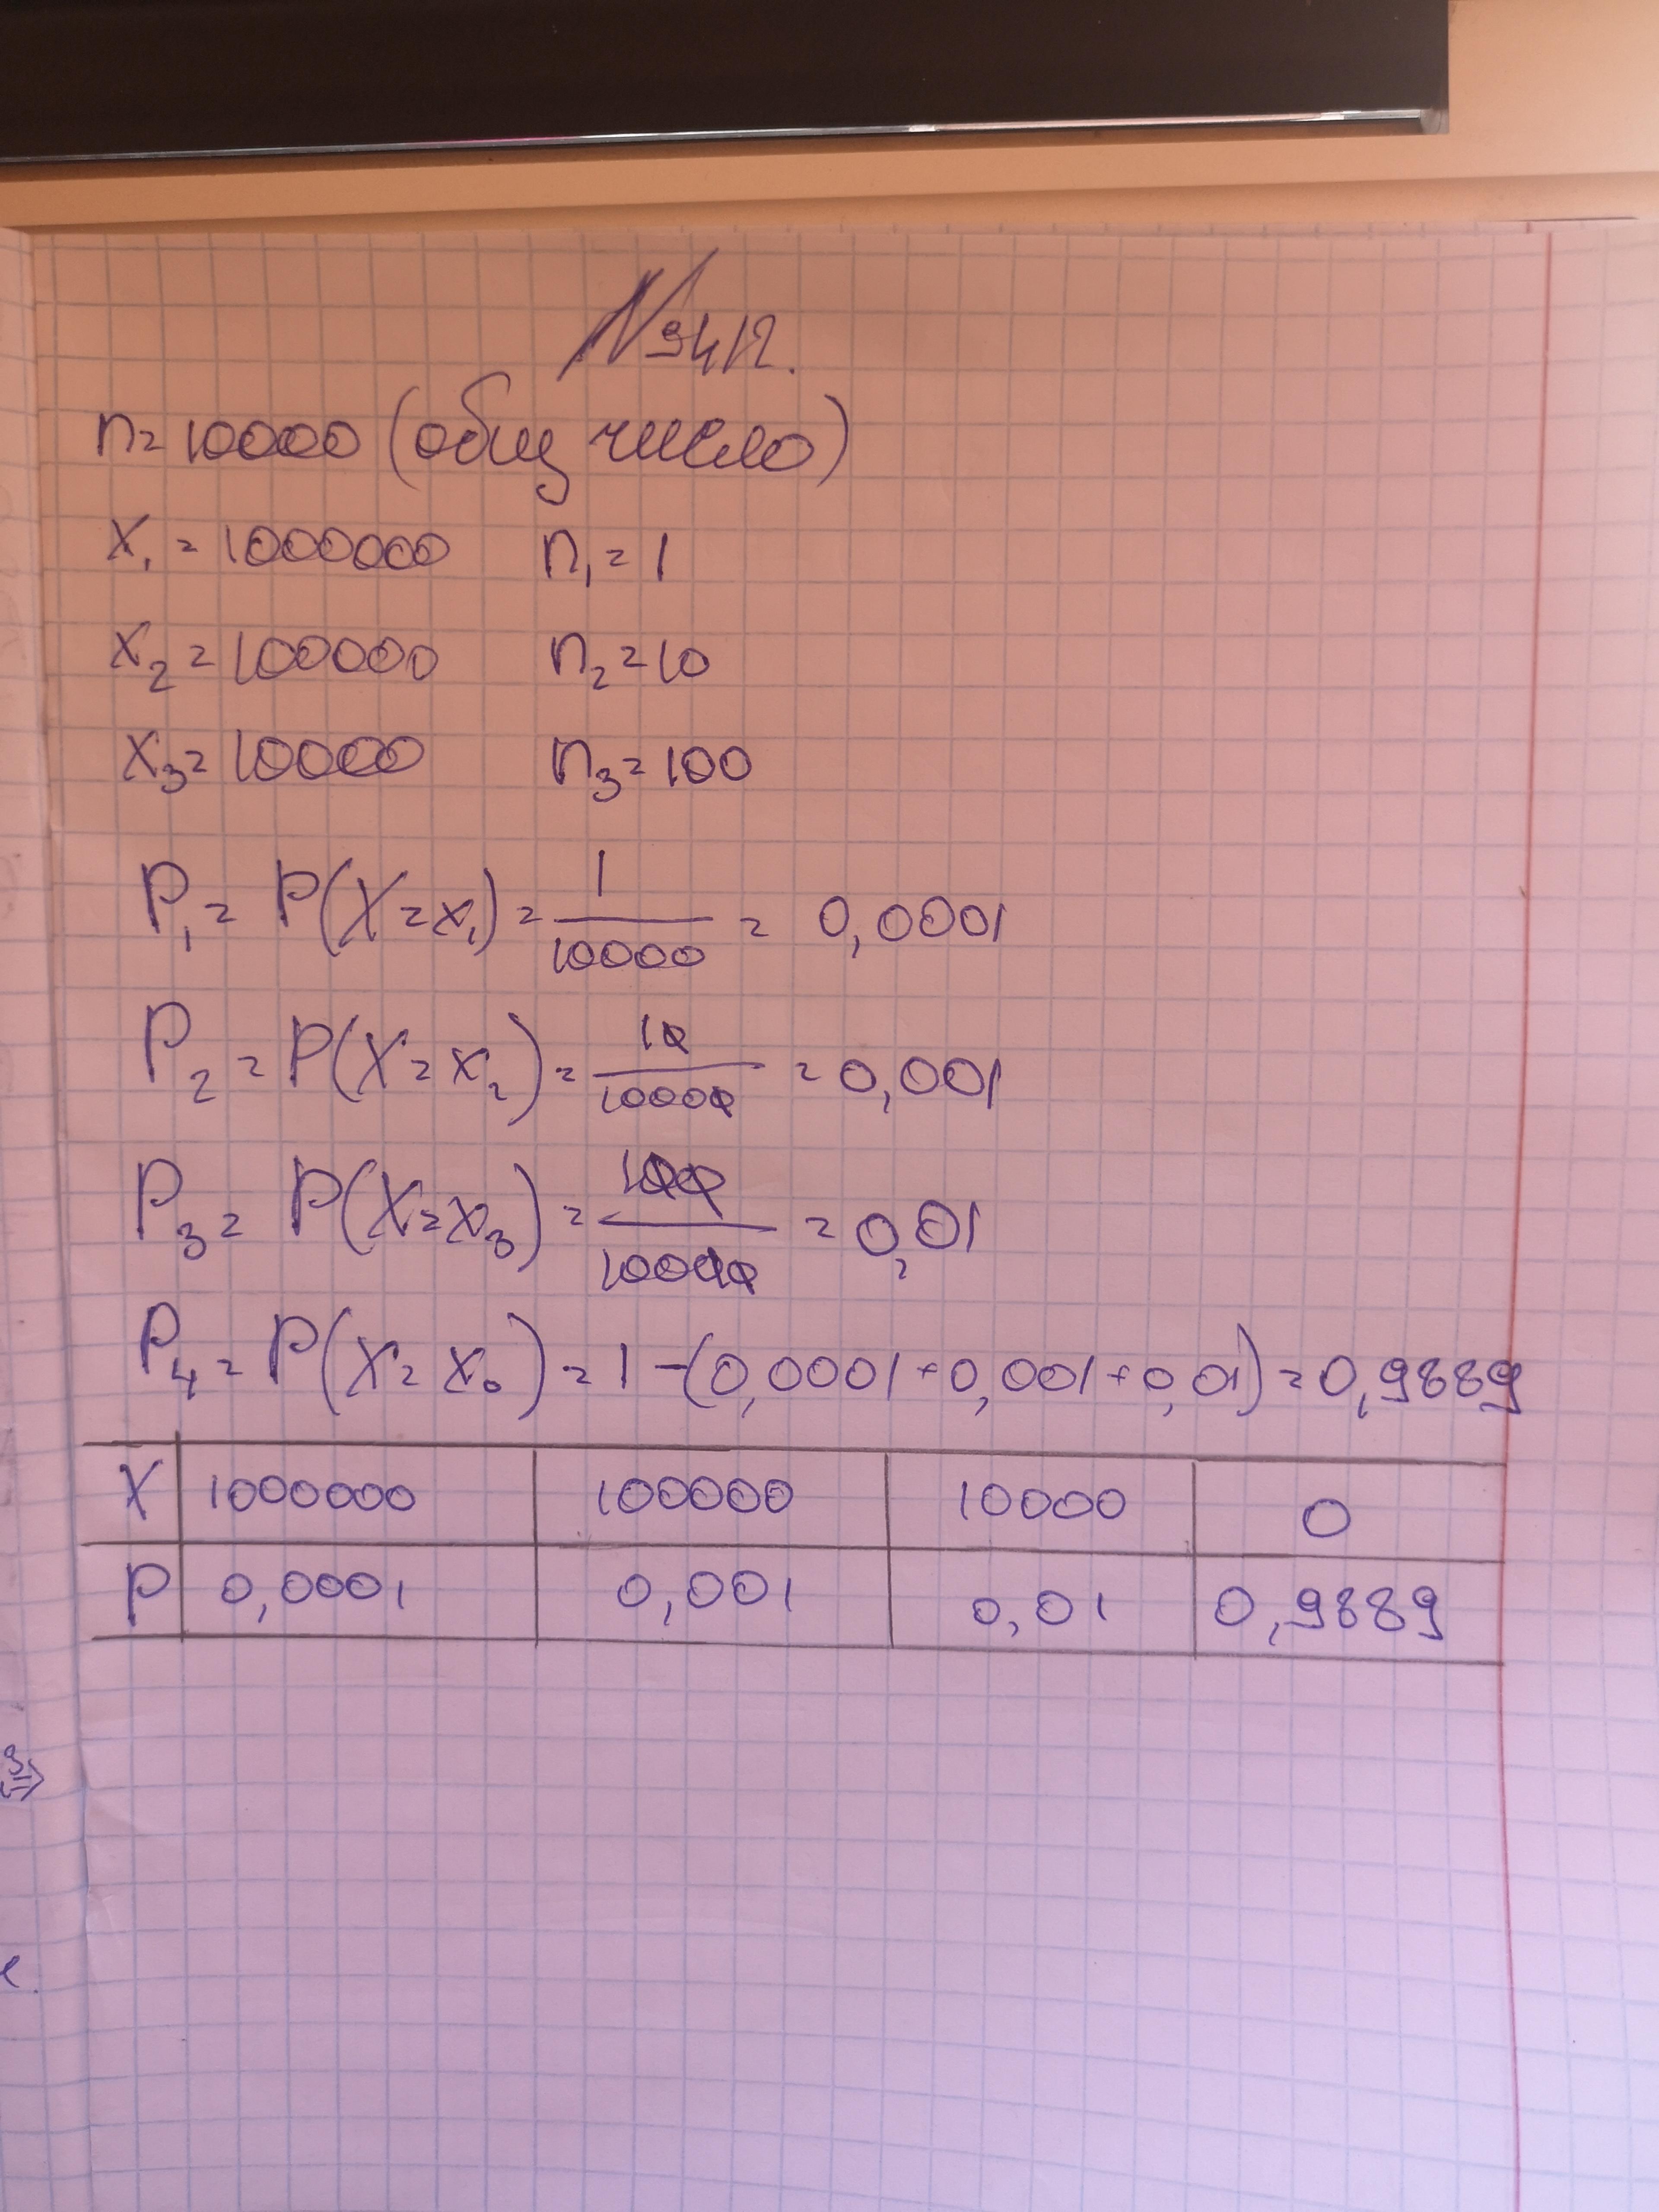 № 942.
n = 10000 (общ число)
X₁ = 1000000 n₁ = 1
X₂ = 100000 n₂ = 10
X₃ = 10000 n₃ = 100
P₁ = P(X = x₁) = 1/10000 = 0,0001
P₂ = P(X = x₂) = 10/10000 = 0,001
P₃ = P(X = x₃) = 100/10000 = 0,01
P₄ = P(X = x₀) = 1 - (0,0001 + 0,001 + 0,01) = 0,9889
X 1000000 100000 10000 0
P 0,0001 0,001 0,01 0,9889